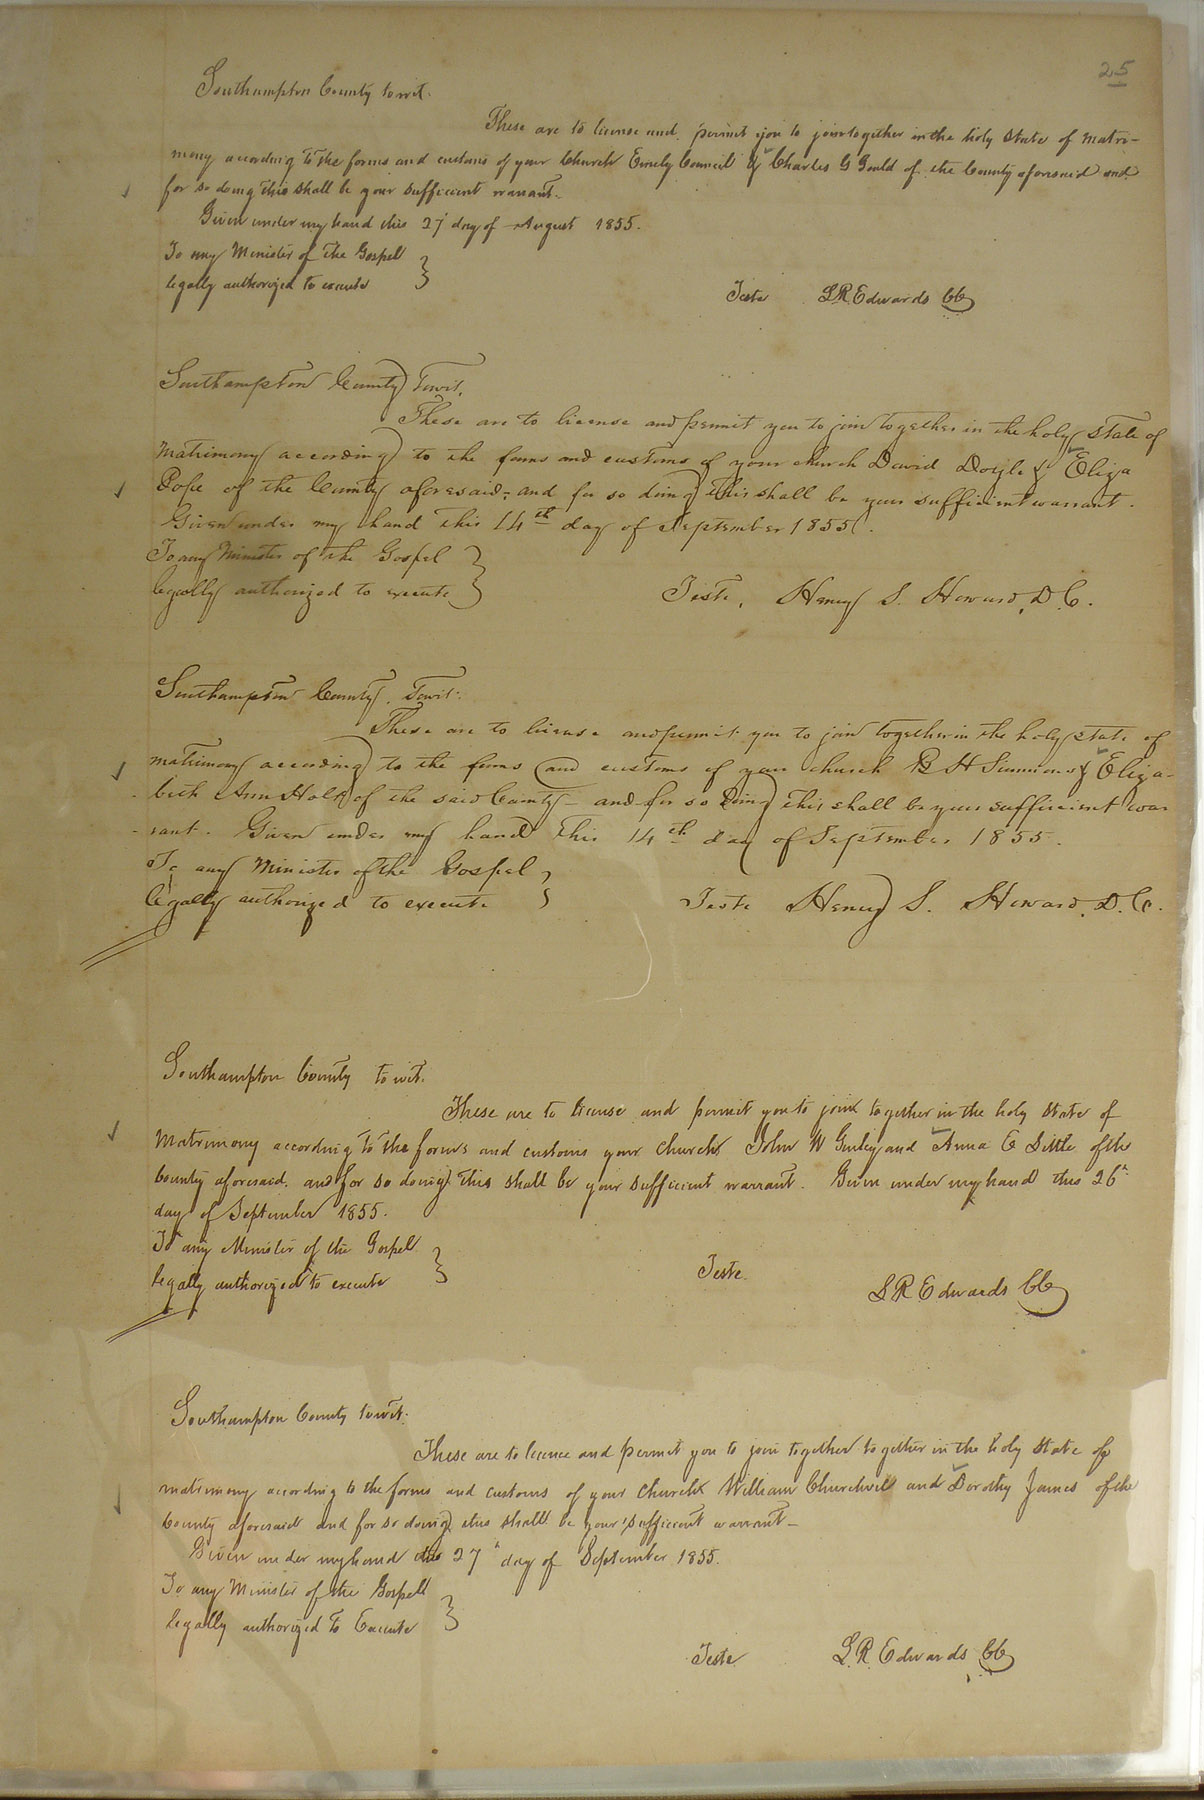 25
Southampton County towit.
These are to license and permit you to join together in the holy state of matri-
mony according to the forms and customs of your Church Emely Council & Charles G Gould of the County aforesaid and
for so doing this shall be your sufficient warrant.
Given under my hand this 27 day of August 1855.
To any Minister of the Gospel
legally authorized to execute }
Teste L R Edwards CC
Southampton County Towit,
These are to license and permit you to join together in the holy state of
matrimony according to the forms and customs of your church David Doyle & Eliza
Pope of the County aforesaid, and for so doing this shall be your sufficient warrant.
Given under my hand this 14th day of September 1855.
To any Minister of the Gospel
legally authorized to execute }
Teste, Henry S. Howard, D.C.
Southampton County, Towit.
These are to license and permit you to join together in the holy state of
matrimony according to the forms and customs of your church B H Simmons & Eliza-
beth Ann of the said County - and for so doing this shall be your sufficient war
rant. Given under my hand this 14th day of September 1855.
To any Minister of the Gospel
legally authorized to execute }
Teste Henry S. Howard, D.C.
Southampton County to wit.
These are to license and permit you to join together in the holy state of
Matrimony according to the forms and customs your church John W and Anna E Little of the
County aforesaid. and for so doing this shall be your sufficient warrant. Given under my hand this 26th
day of September 1855.
To any Minister of the Gospel
legally authorized to execute }
Teste.
L R Edwards CC
Southampton County towit.
These are to licence and permit you to join together together in the holy state of
matrimony according to the forms and customs of your church William Churchwell and Dorothy James of the
County aforesaid and for so doing this shall be your sufficient warrant -
Given under my hand this 27th day of September 1855.
To any Minister of the Gospell
legally authorized to Execute }
Teste L. R. Edwards CC